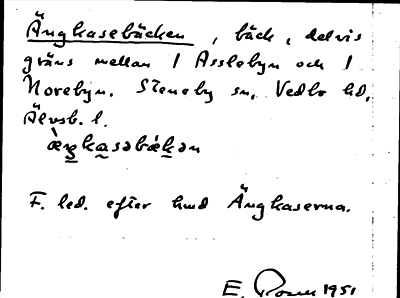 Ängkasebäcken, bäck, delvis
gräns mellan 1 Asslebyn och 1
Norebyn. Steneby sn, Vedbo hd,
Älvsb. l.
F. led. efter hmd Ängkaserna.
E. 1951